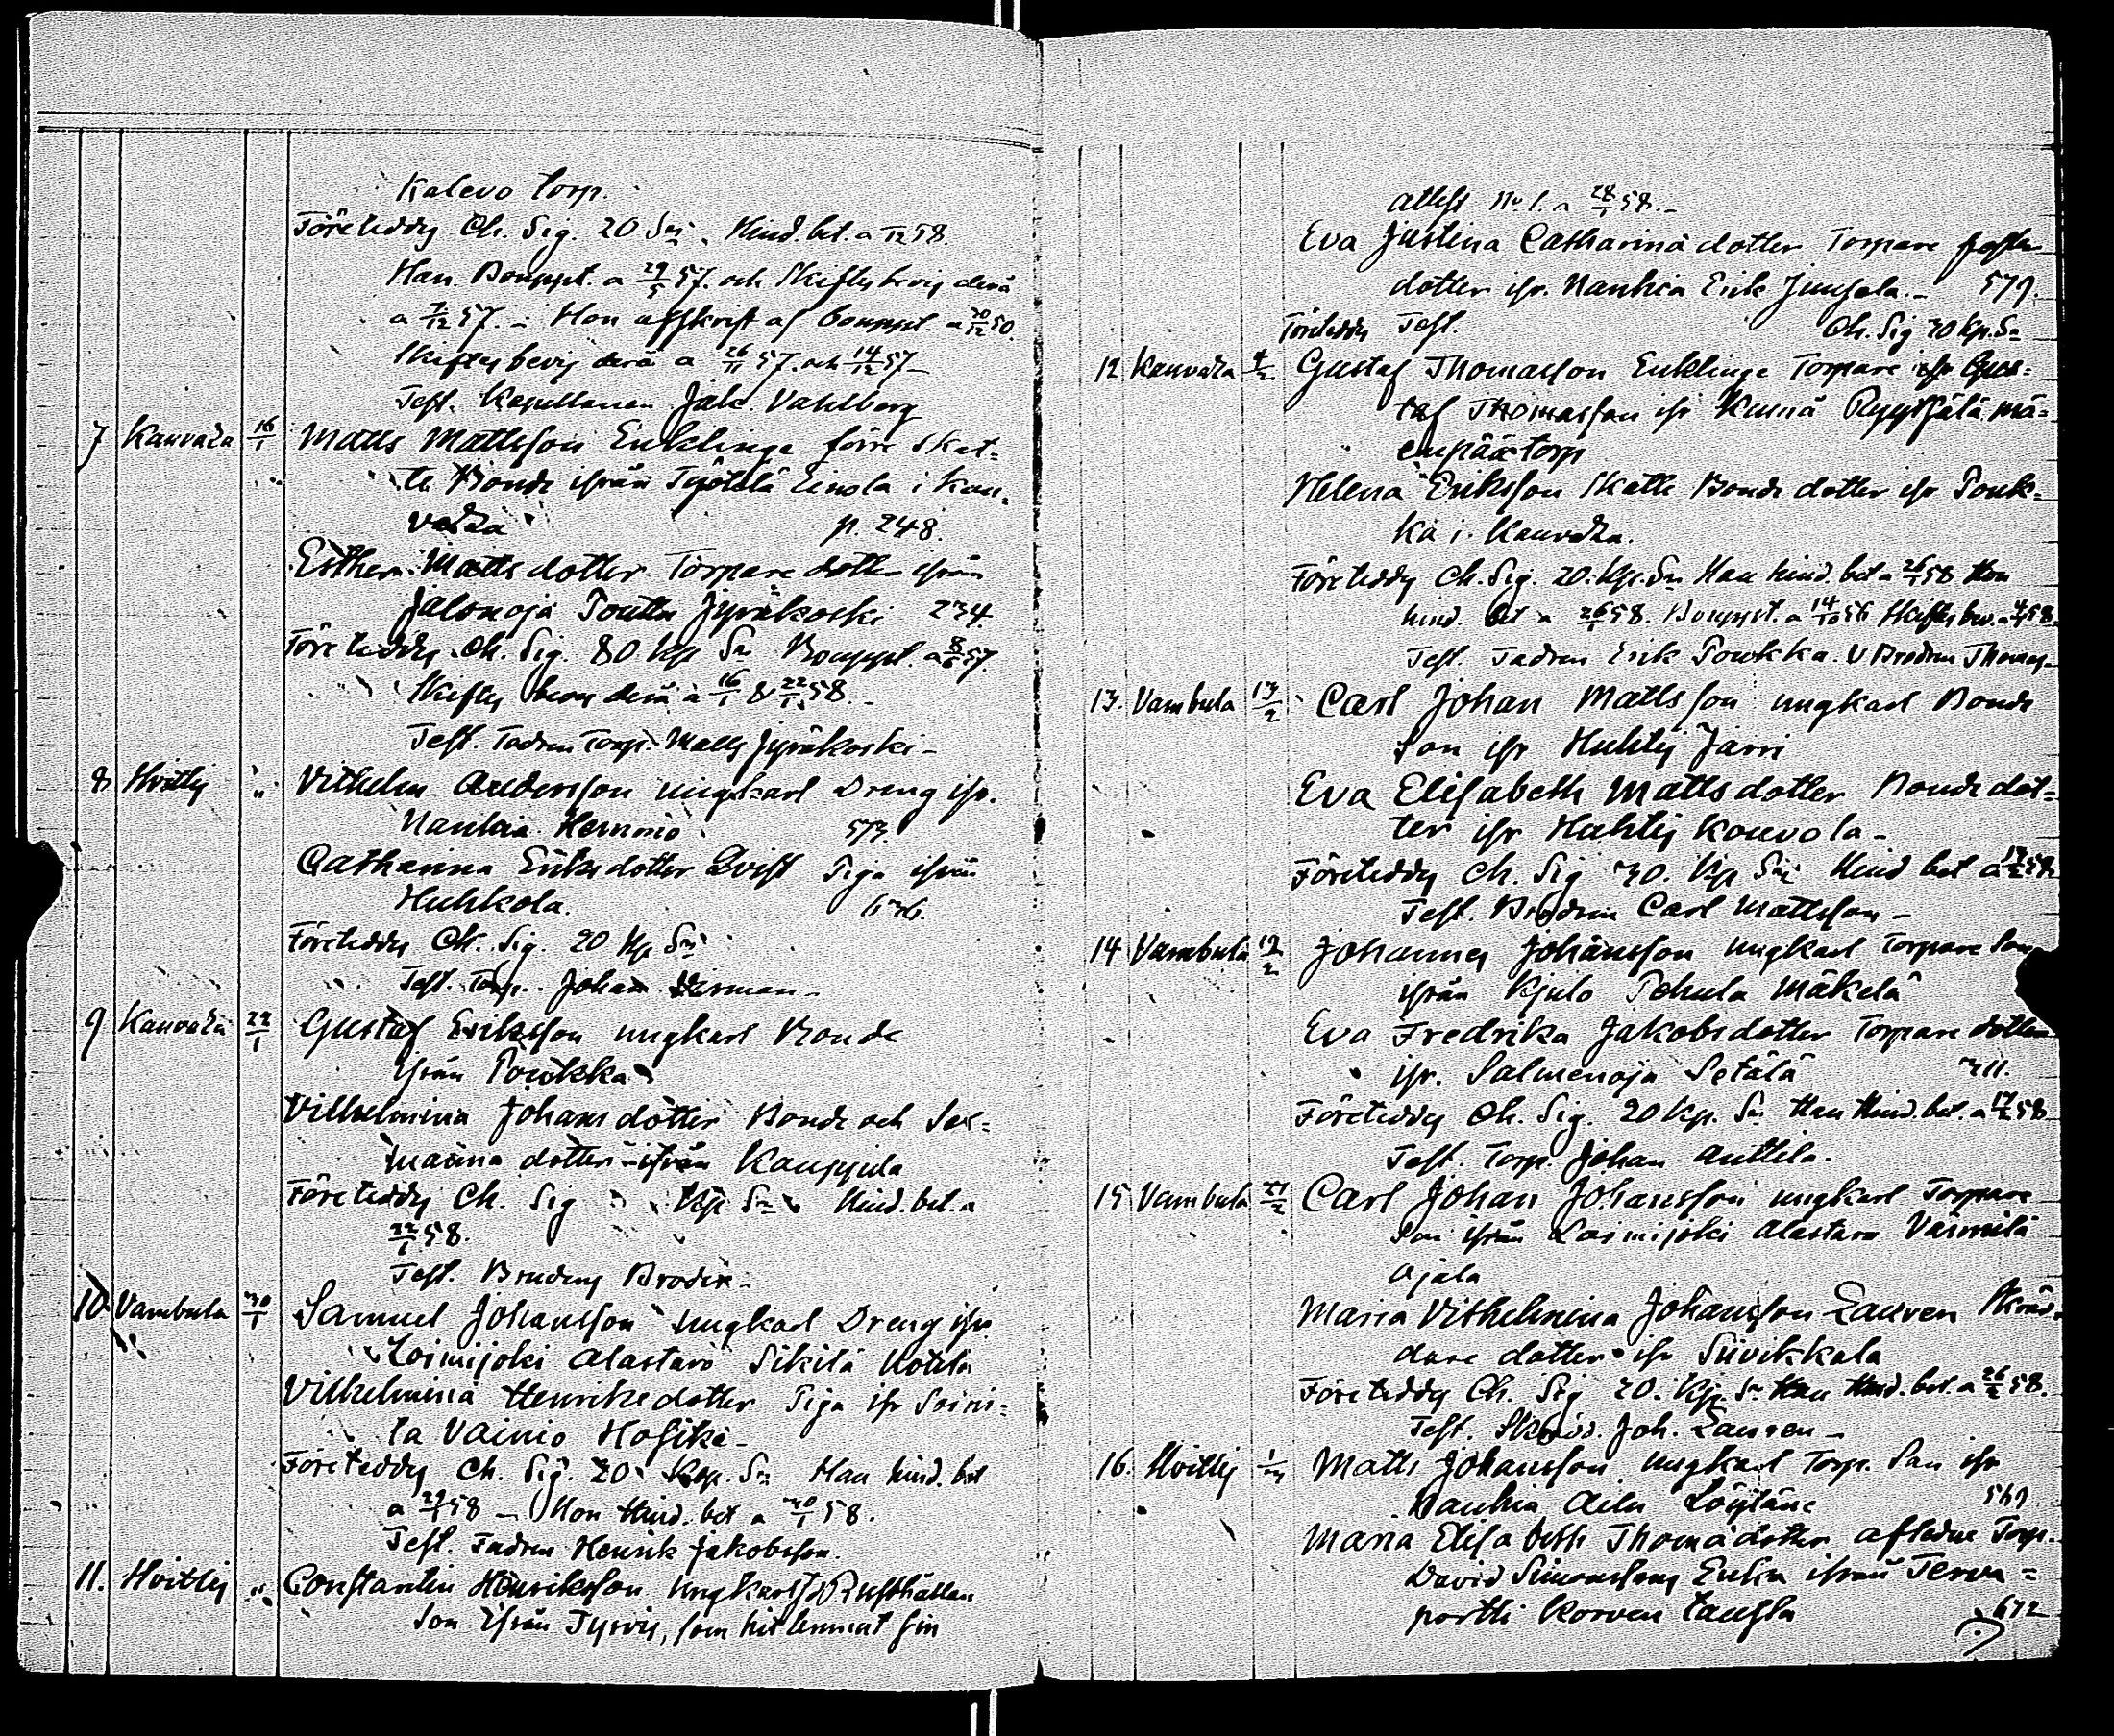 Kalevo torp.
Företeddes Ch. Sig. 20 Hind. bet. a 58.
Han Bouppt. a 29/5 57. och Skiftes bevis derå
a 7/12 57. Hon afskrift af bouppt. a 20/12 50.
Skiftes bevis derå a 26/11 57. och 14/12 57
Test. Kapellanen Jak. Vahlberg
7 Kauvatza 16/1 Matts Mattsson Enklinge förre Skat=
te Bonde ifrån Työtelä Einola i Kau=
vatza p. 248.
Esther Matts dotter Torpare dotter ifrån
Jalonoja Pouttu Jyräkoski 234.
Företeddes Ch. Sig. 80 Kp Sr Bouppt. a 8/6 57.
Skiftes bevis derå a 16/1 & 22/1 58.
Test. Fadren Torp. Matts Jyräkoski
8 Hvittis " Vilhelm Andersson ungkarl Dreng ifr.
Nanhia Hemmio 573.
Catharina Eriksdotter Qvist Piga ifrån
Huhkola. 636.
Företeddes Ch. Sig. 20 Kp Sr
Test. Torp. Johan
9 Kauvatza 22/1 Gustaf Eriksson ungkarl Bonde
ifrån Poukka
Vilhelmina Johans dotter Bonde och Sex=
manna dotter ifrån Kauppila
Företeddes Ch. Sig Kp Sr Hind. bet. a
22/1 58.
Test. Brudens Broder
10. Vambula 30/1 Samuel Johansson ungkarl Dreng ifr.
Loimijoki Alastaro Sikilä Kotila
Vilhelmina Henriks dotter Piga ifr Soini=
la Vainio Hosike
Företeddes Ch. Sig. 20 Kop. Sr Han hind. bet
a 29/1 58 Hon Hind. bet a 30/1 58.
Test. Fadren Henrik Jakobsson.
11. Hvittis " Constantin Henriksson Ungkarl Rusthållare
Son ifrån Tyrvis, som hit lemnat sin
attest No 1. a 28/1 58.
Eva Justina Catharina dotter Torpare foster
dotter ifr. Nanhia Erik Junsola. 579.
Företeddes Test. Ch. Sig 30 Kp. Sr
12 Kauvatza 4/2 Gustaf Thomasson Enklinge Torpare ifr Gus=
taf Thomasson ifr Kuinä Ryssälä mä=
enpää torp
Helena Eriksson Skatte Bonde dotter ifr Pouk=
ka i Kauvatza.
Företeddes Ch. Sig. 20. Kp. Sr Han hind. bet a 26/1 58 Hon
hind. bet a 26/1 58. Bouppt. a 14/10 56 Skiftes bev. a 4/1 58.
Test. Fadren Erik Poukka. & Brodren Thomas
13. Vambula 13/2 Carl Johan Mattsson ungkarl Bonde
Son ifr Huhtis Jarri
Eva Elisabeth Mattsdotter Bonde dot=
ter ifr Huhtis Kouvola
Företeddes Ch. Sig 30. Kp Sr Hind bet a 13/2 58.
Test. Brodren Carl Mattsson
14 Vambula 19/2 Johannes Johansson ungkarl Torpare Son
ifrån Kjulo Pehula Mäkelä
Eva Fredrika Jakobsdotter Torpare dotter
ifr. Salmenoja Setälä 311.
Företeddes Ch. Sig. 20 Kp. Sr Han Hind. bet. a 58
Test. Torp. Johan Anttila.
15 Vambula 27/2 Carl Johan Johansson ungkarl Torpare
Son ifrån Loimijoki Alastaro Vännilä
Ojala
Maria Vilhelmina Johansson Lauren Skräd=
dare dotter ifr Siivikkala
Företeddes Ch. Sig 20. Kp. Sr Han Hind. bet. a 26/2 58.
Test. Skrädd. Joh. Lauren
16. Hvittis Matts Johansson ungkarl Torp. Son ifr
Nanhia Löytäne 569
Maria Elisabeth Thomadotter aflidne Torp.
David Simonssons Enka ifrån Terva=
portti Korven tausta 672